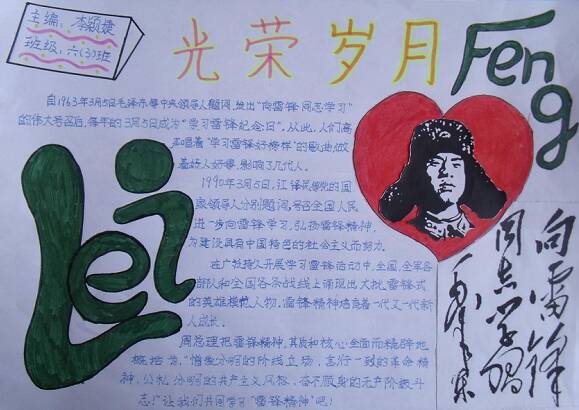 主编：李颖婕
班级：六(3)班
光荣岁月
Lei
Feng
自1963年3月5日毛泽东等中央领导人题词，发出“向雷锋同志学习”
的伟大号召后，每年的3月5日成为“学习雷锋纪念日”。从此，人们高
唱着“学习雷锋好榜样”的歌曲，做
着好人好事，影响了几代人。
1990年3月5日，江泽民等党的国
家领导人分别题词，号召全国人民
进一步向雷锋学习，弘扬雷锋精神，
为建设具有中国特色的社会主义而努力。
在广泛持久开展学习雷锋活动中，全国、全军各
部队和全国各条战线上涌现出大批雷锋式
的英雄模范人物，雷锋精神培育着一代又一代新
人成长。
周总理把雷锋精神，其质和核心全面而精辟地
概括为，“憎爱分明的阶级立场，言行一致的革命精
神，公私分明的共产主义风格，奋不顾身的无产阶级斗
志！”让我们共同学习“雷锋精神”吧！
向雷锋
同志学习
毛泽东